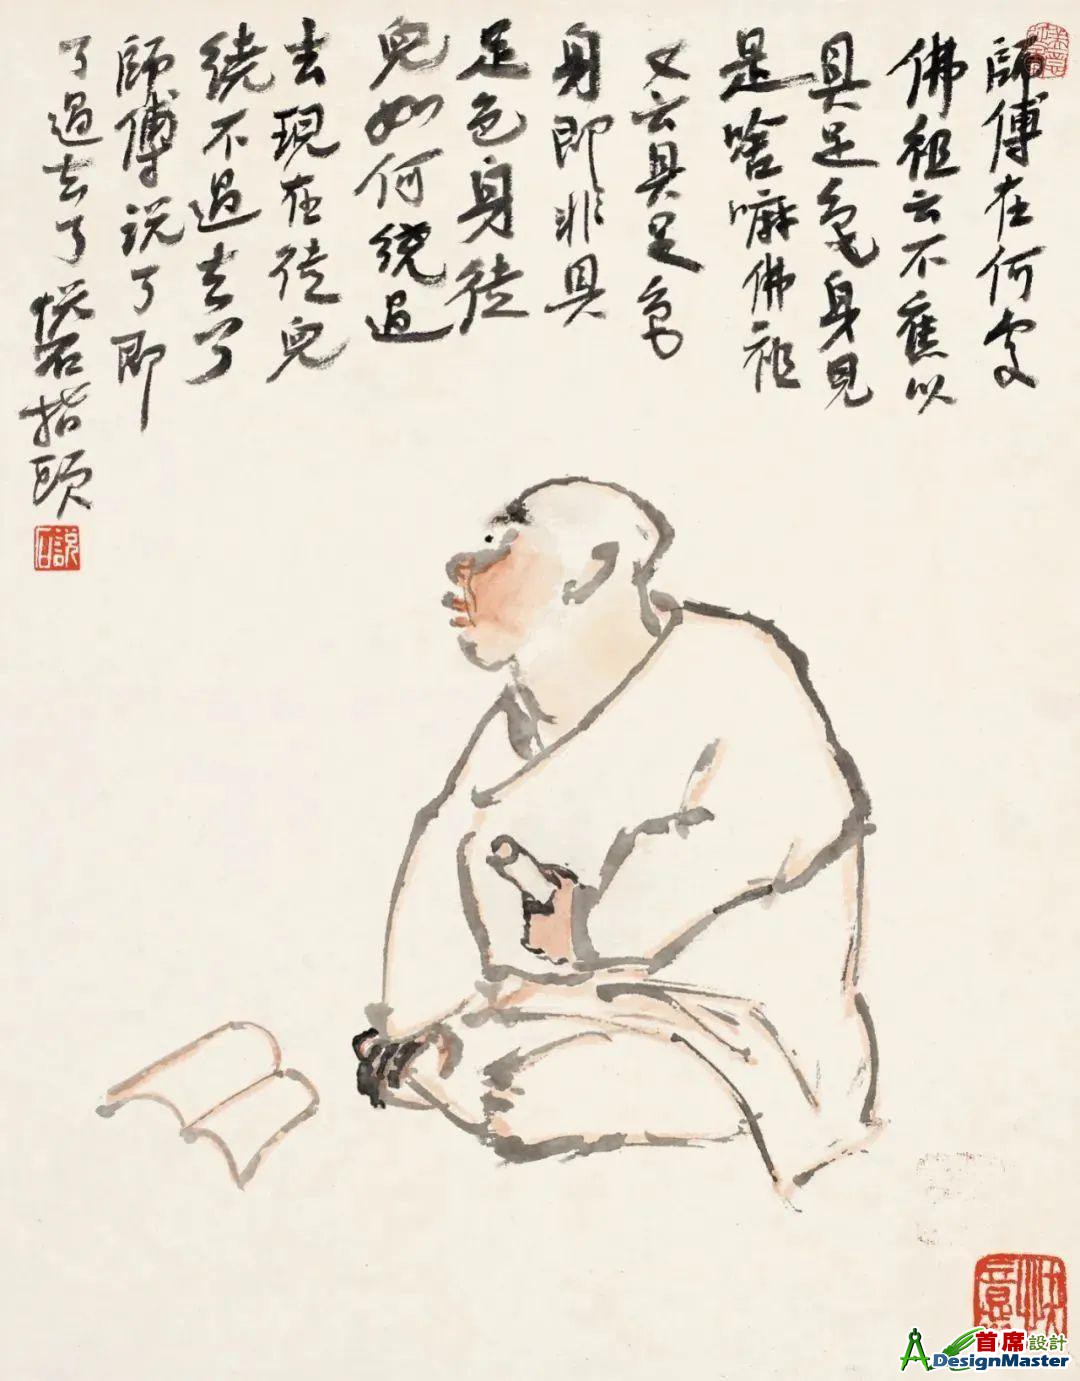 師傅在何處
佛祖云不應以
具足色身見
是啥嘛佛祖
又云具足色
身即非具
足色身徒
兒如何繞過
去現在徒兒
繞不過去了
師傅说了即
了過去了悦石指頭
説石
快意
首席設計
DesignMaster